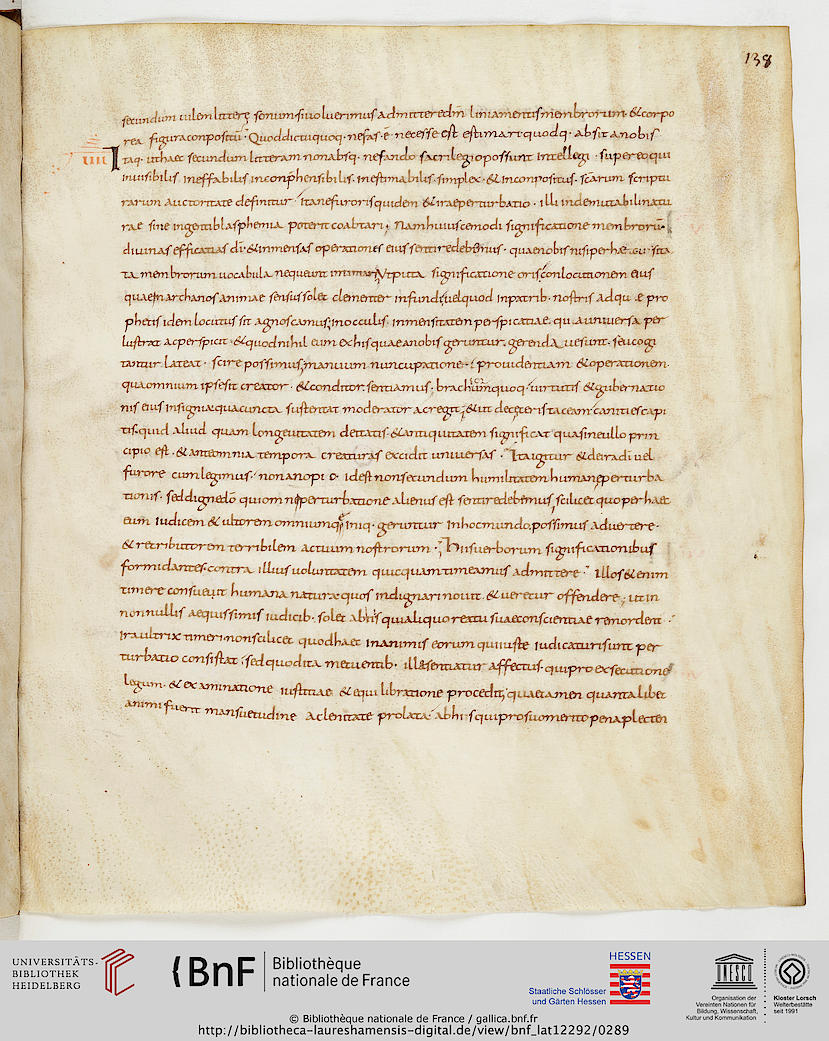 138
secundum uilem litterę sonum si uoluerimus admittere dm̄ liniamentis membrorum & corpo
rea figura conpositū Quod dictu quoq· nefas ē· necesse est estimari quod q· absit a nobis
IIII Itaq· ut haec secundum litteram non absq· nefando sacrilegio possunt intellegi super eo qui
inuisibilis ineffabilis inconp̄hensibilis inestimabilis simplex & inconpositus scārum scriptu
rarum auctoritate definitur ita ne furoris quidem & irae perturbatio illi indemutabili natu
rae sine ingenti blasphemia poterit coabtari Nam huiuscemodi significatione membrorū
diuinas efficatias dī & inmensas operationes eius sentire debemus quae nobis nisi per haec usita
ta membrorum uocabula nequeunt intimari Ut puta significatione oris conlocutionem eius
quae in archanos animae sensus solet clementer infundi uel quod in patrib· nostris ad qu pro
phetis idem locutus sit agnoscamus in occulis inmensitatem perspicatiae qu uniuersa per
lustrat ac perspicit & quod nihil eum ex his quae a nobis geruntur gerenda ue sunt seu cogi
tantur lateat scire possimus manuum nuncupatione prouidentiam & operationem
qua omnium ipse sit creator & conditor sentiamus brachium quoq· uirtutis & gubernatio
nis eius insignia qua cuncta sustentat moderator ac regit & ut de ceteris taceam canities capi
tis quid aliud quam longeuitatem deitatis & antiquitatem significat qua sine ullo prin
cipio est & ante omnia tempora creaturas excidit uniuersas Ita igitur & de ira di uel
furore cum legimus non id est non secundum humilitatem humane perturba
tionis sed digne dō qui omni perturbatione alienus est sentire debemus scilicet quo per haec
eum iudicem & ultorem omnium quę iniq· geruntur in hoc mundo possimus aduertere
& retributorem terribilem actuum nostrorum His uerborum significationibus
formidantes contra illius uoluntatem quicquam timeamus admittere Illos & enim
timere consueuit humana natura quos indignari nouit & ueretur offendere ut in
non nullis aequissimis iudicib· solet ab his qui aliquo reatu suae conscientiae remordent
ira ultrix timeri non scilicet quod haec in animis eorum qui iuste iudicaturi sunt per
turbatio consistat sed quod ita metuentib· ille sentiatur affectus qui pro exsecutione
legum & examinatione iustitiae & equi libratione procedit quae tamen quantalibet
animi fuerit mansuetudine ac lenitate prolata ab his qui pro suo merito pena plecten
UNIVERSITÄTS-
BIBLIOTHEK
HEIDELBERG
BnF
Bibliothèque
nationale de France
HESSEN
Staatliche Schlösser
und Gärten Hessen
UNESCO
Organisation der
Vereinten Nationen für
Bildung, Wissenschaft,
Kultur und Kommunikation
Kloster Lorsch
Welterbestätte
seit 1991
© Bibliothèque nationale de France / gallica.bnf.fr
http://bibliotheca-laureshamensis-digital.de/view/bnf_lat12292/0289